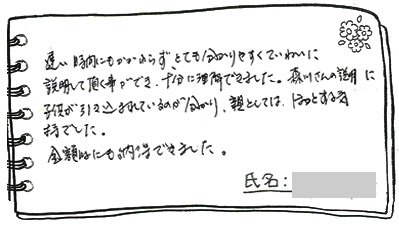 遅い時間にもかかわらず、とても分かりやすくていねいに
説明して頂く事ができ、十分に理解できました。森川さんの説明に
子供が引き込まれているのが分かり、親としては、ほっとする気
持でした。
金額にも納得できました。
氏名: